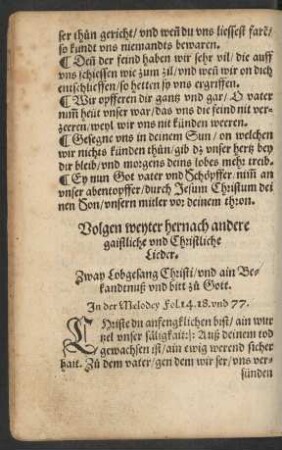 ser thün gericht/ vnd weñ du vns liessest farẽ/
so kundt vns niemandts bewaren.
¶ Deñ der feind haben wir sehr vil/ die auff
vns schiessen wie zum zil/ vnd weñ wir on dich
entschlieffen/ so hetten sy vns ergriffen.
¶ Wir opfferen dir gantz vnd gar/ O vater
nim̃ heüt vnser war/ das vns die feind nit ver-
zeeren/ weyl wir vns nit künden weeren.
¶ Gesegne vns in deinem Sun/ on welchen
wir nichts künden thün/ gib dz vnser hertz bey
dir bleib/ vnd morgens deins lobes mehr treib.
¶ Ey nun Got vater vnd Schöpffer/ nim̃ an
vnser abentopffer/ durch Jesum Christum dei
nen Son/ vnsern mitler vor deinem thron.
Volgen weyter hernach andere
gaistliche vnd Christliche
Lieder.
Zway Lobgesang Christi/ vnd ain Be-
kandtnuß vnd bitt zů Gott.
In der Melodey Fol. 14. 18. vnd 77.
CHriste du anfengklichen bist/ ain wur
tzel vnser säligkait:|: Auß deinem tod
gewachsen ist/ ain ewig werend sicher
hait. Zů dem vater/ gen dem wir ser/ vns ver-
sünden